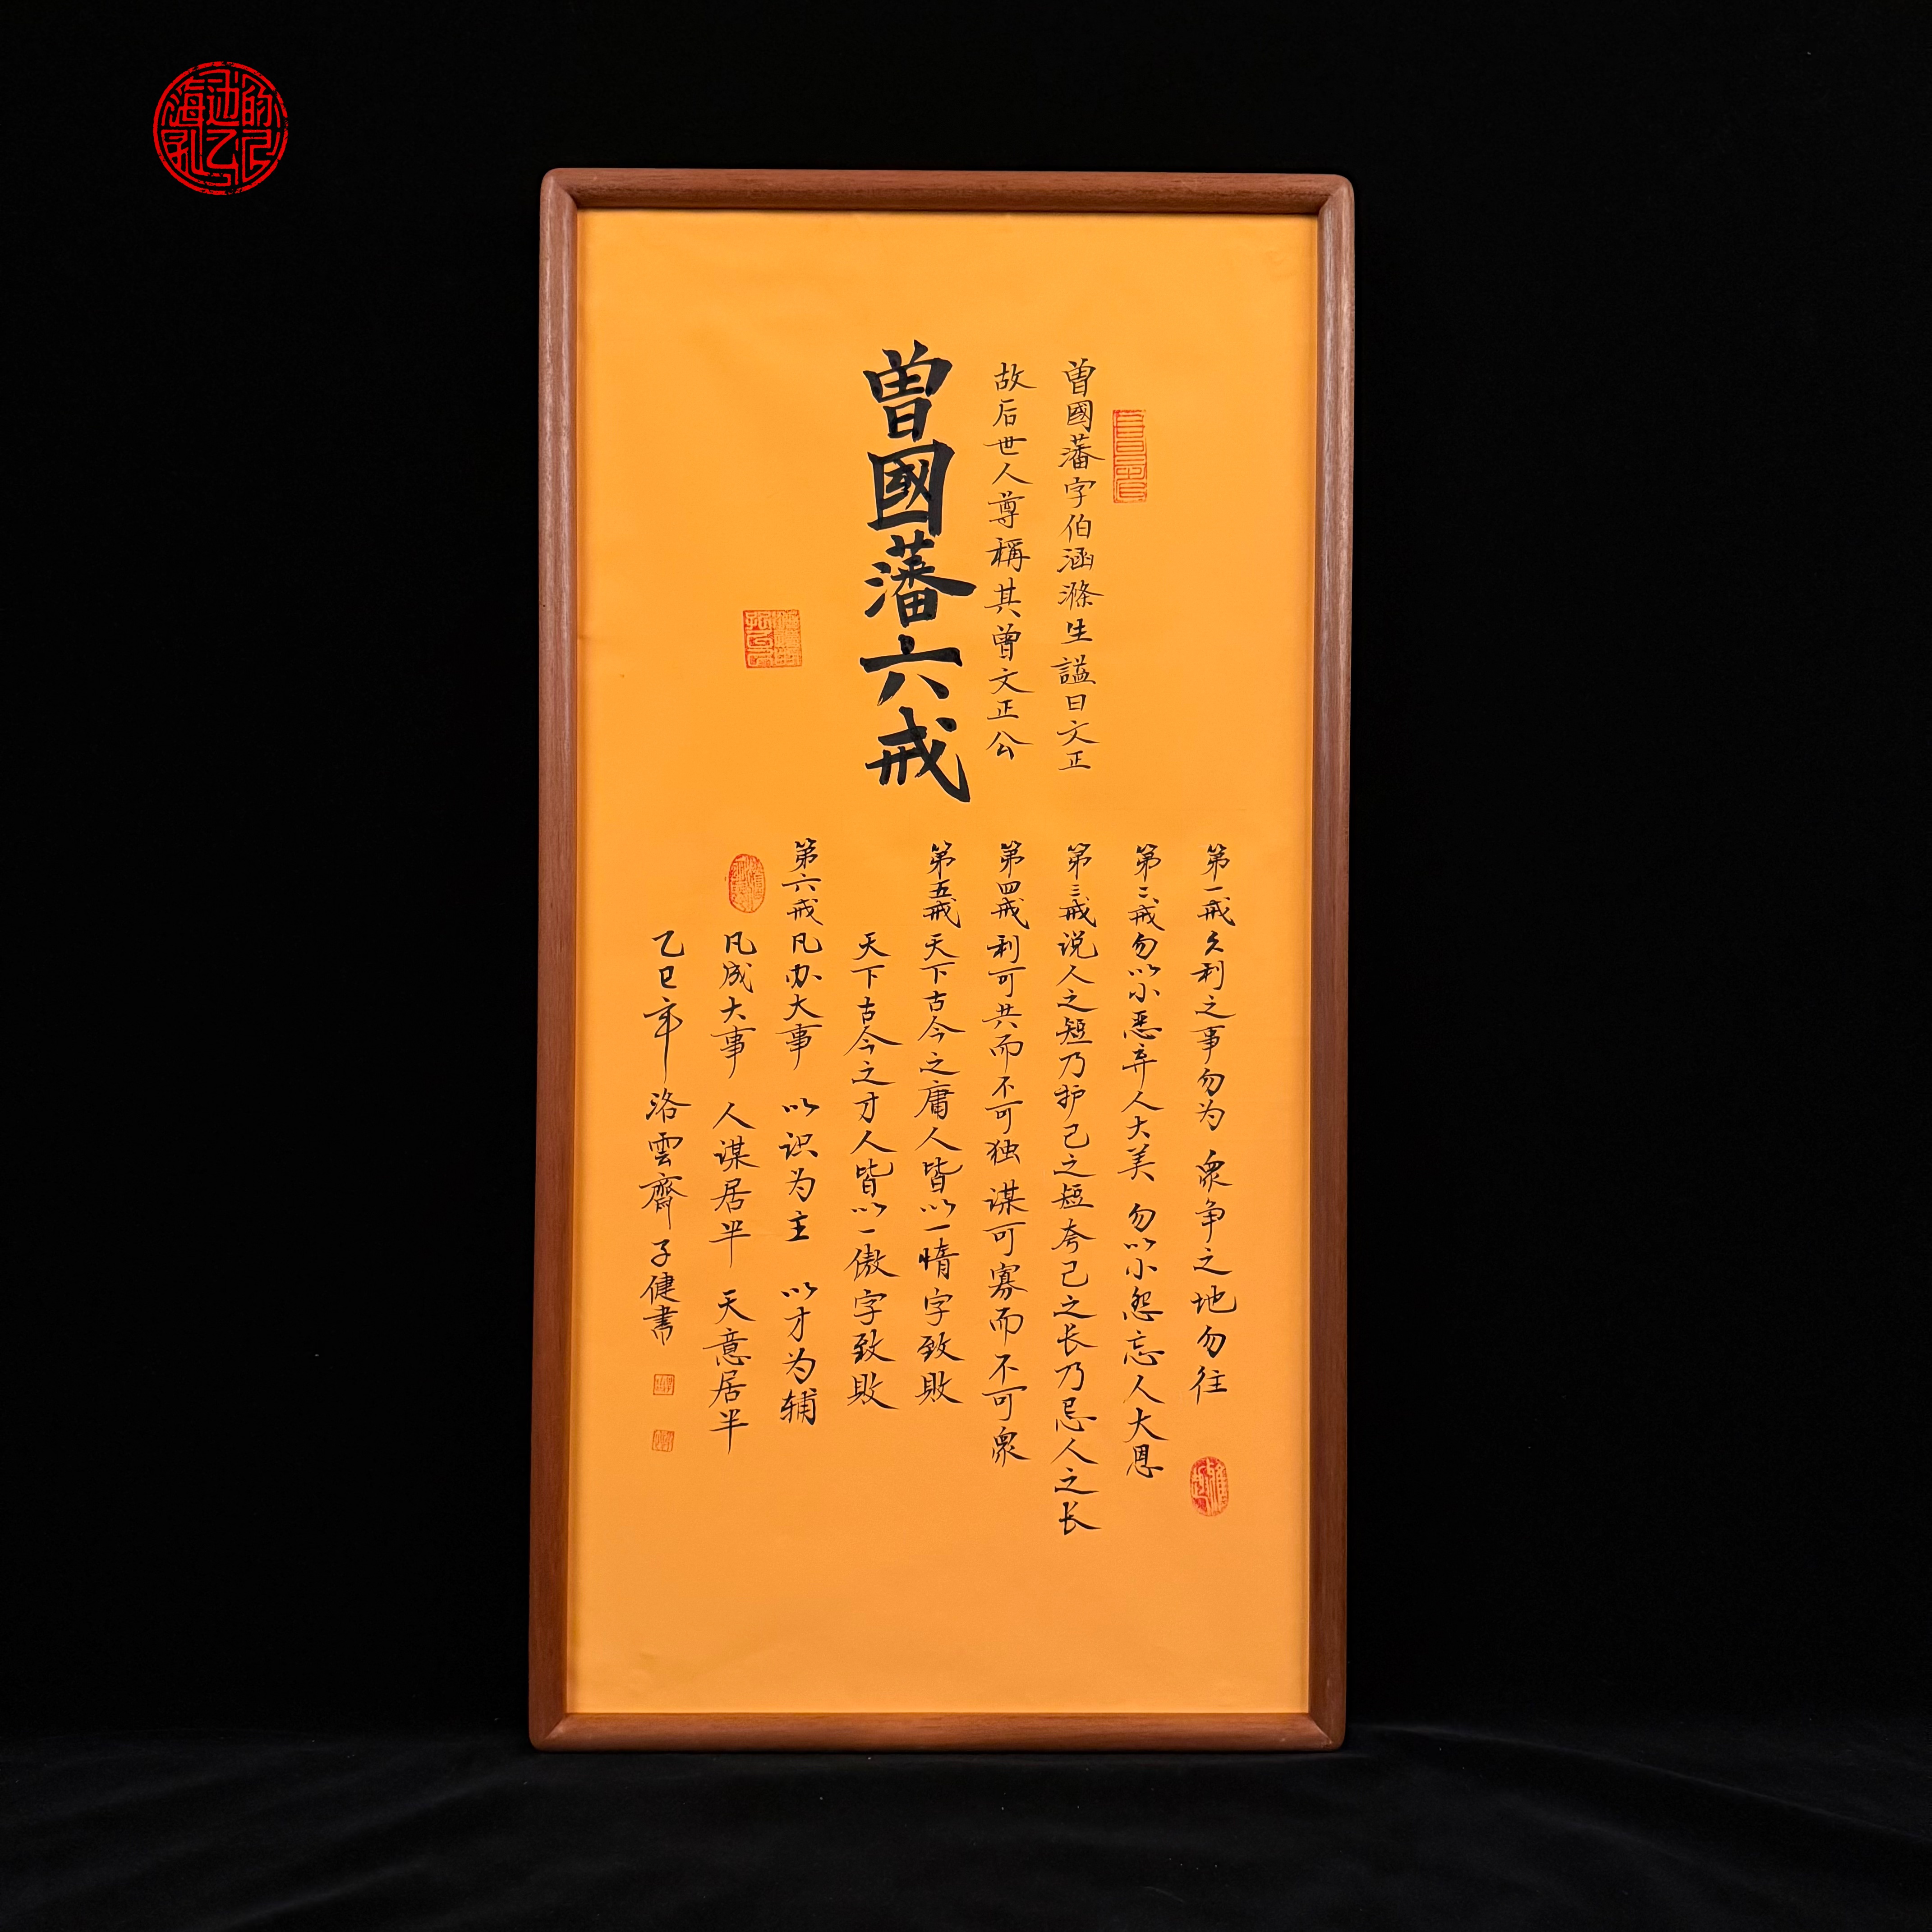 海边的
孔乙己
曾國藩字伯涵滌生謚曰文正
故后世人尊稱其曾文正公
曾國藩六戒
第一戒久利之事勿为 衆争之地勿往
第二戒勿以小恶弃人大美 勿以小怨忘人大恩
第三戒说人之短乃护己之短夸己之长乃忌人之长
第四戒利可共而不可独 谋可寡而不可衆
第五戒天下古今之庸人皆以一惰字致敗
天下古今之才人皆以一傲字致敗
第六戒凡办大事 以识为主 以才为辅
凡成大事 人谋居半 天意居半
乙巳年洛雲齋子健書